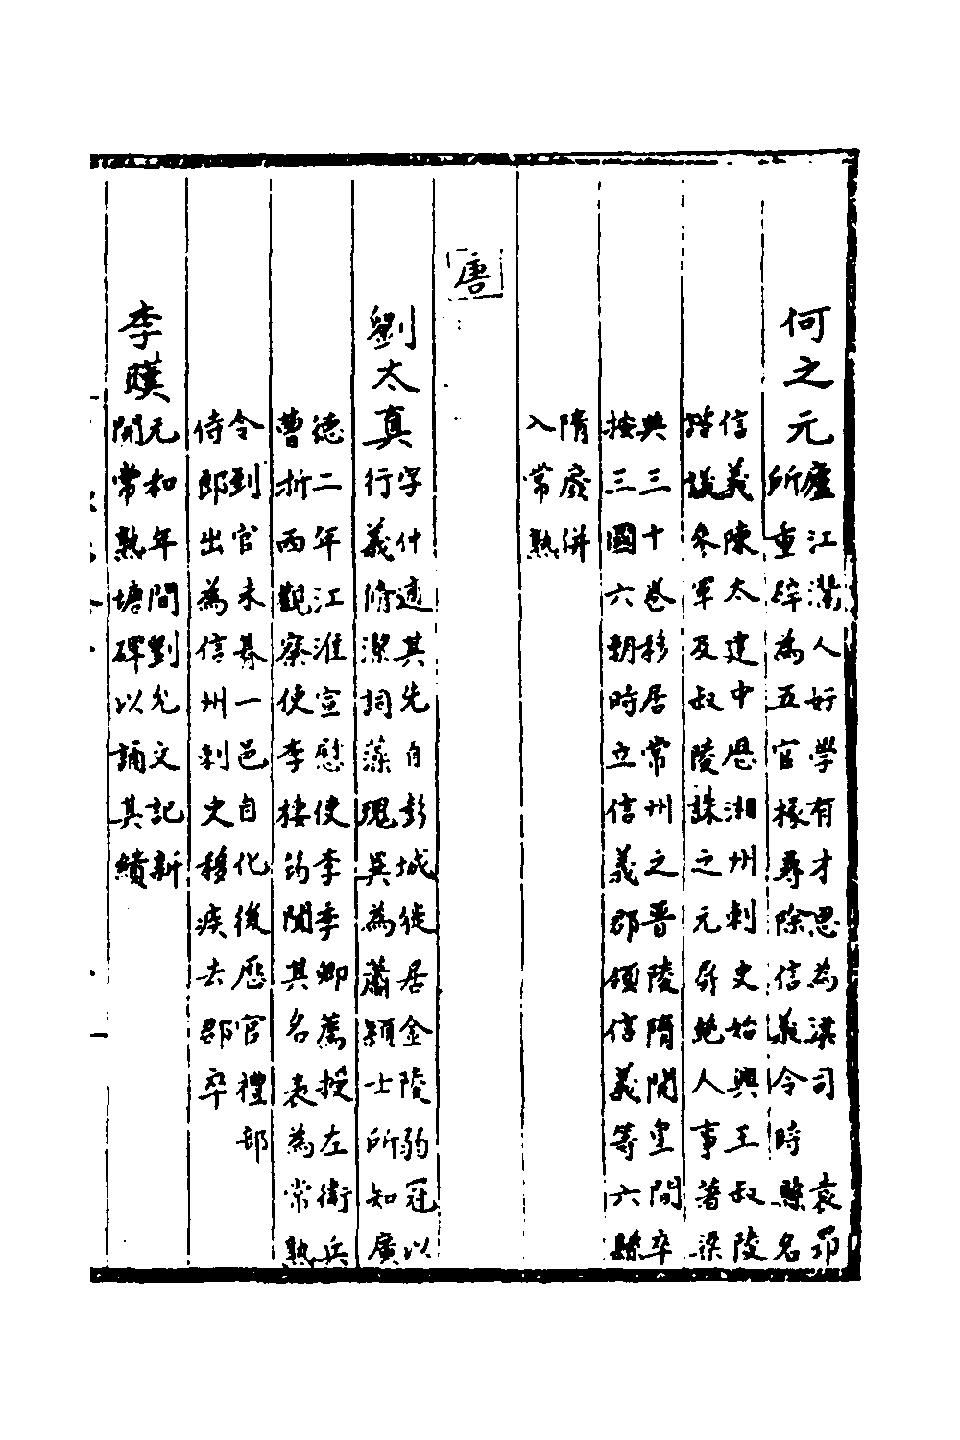 何之元
廬江灊人好學有才思為梁司袁昂
所重辟為五官掾尋除信義令時縣名
信義陳太建中歷湘州刺史始興王叔陵
諮議參軍及叔陵誅之元屏絶人事著梁
典三十卷移居常州之晉陵隋開皇間卒
按三國六朝時立信義郡領信義等六縣
隋廢併
入常熟
唐
劉太真
字什適其先自彭城徙居金陵弱冠以
行義脩潔詞藻瑰異為蕭穎士所知廣
德二年江淮宣慰使李季卿薦授左衛兵
曹浙西觀察使李棲筠聞其名表為常熟
令到官未朞一邑自化後歷官禮部
侍郎出為信州刺史移疾去郡卒
李暵
元和年間劉允文記新
開常熟塘碑以誦其績